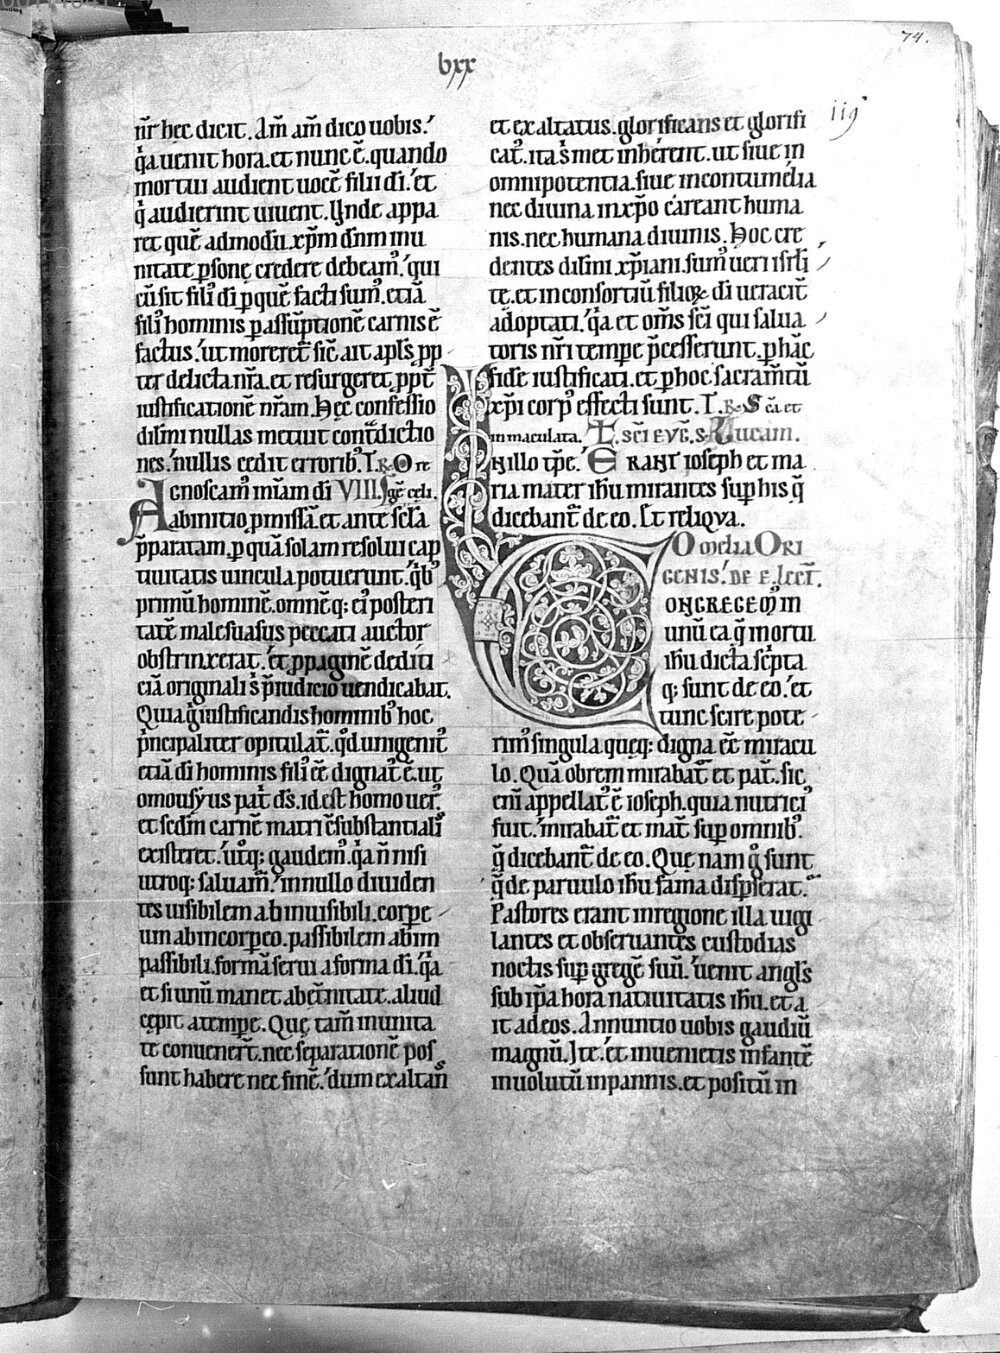 74.
lxx
119
nr̄ hęc dicit. Am̄ am̄ dico uobis.
q̄a uenit hora. et nunc ē. quando
mortui audient uocē filii dī. et
q̄ audierint uiuent. Unde appa
ret quē admodū xp̄m dn̄m in u
nitate p̱sonę credere debeam᾽. qui
cū sit fili᾽ dī p̱ quē facti sum᾽. etiā
fili᾽ hominis p̱ assūptionē carnis ē
factus. ut moreret᾽ sic̄ ait apl̄s pp̄
ter delicta nr̄a. et resurgeret ppt̄
iustificationē nr̄am. Hęc confessio
dil̄mi nullas metuit cont̄dictio
nes. nullis cedit errorib᾽. T. R. O re
Agnoscam᾽ mīam dī VIII. gē celi.
ab initio p̄missā. et ante sc̄la
p̄paratam. p̱ quā solam resolui cap
tiuitatis uincula potuerunt. q̄b᾽
primū hominē. omnēq; ei᾽ posteri
tatē malesuasus peccati auctor
obstrinxerat. et ppaginē dediti
ciā originali s̄ p̄iudicio uendicabat.
Quia ḡ iustificandis hominib᾽ hoc
p̄ncipaliter opitulat̄. qd̄ unigenit᾽
etiā dī hominis fili᾽ eē dignat᾽ ē. ut
omousyus pat̄ ds̄. id est homo uer᾽.
et sedm̄ carnē matri cōsubstantial᾽
existeret. utq; gaudem᾽. q̄a n̄ nisi
utroq; saluam᾽. in nullo diuiden
tes uisibilem ab inuisibili. corpe
um ab incorpeo. passibilem ab im
passibili. formā serui a forma dī. q̄a
et si unū manet ab et̄nitate. aliud
cępit a tempe. Quę tam̄ in unita
tē conuener̄t. nec separationē pos
sunt habere nec finē. dum exaltan̄
et exaltatus. glorificans et glorifi
cat᾽. ita s̄met inhęrent. ut siue in
omnipotentia. siue in contumelia
nec diuina in xp̄o careant huma
nis. nec humana diuinis. Hoc cre
dentes dil̄mi. xp̄iani sum᾽ ueri isrl̄i
te. et in consortiū filioꝝ dī ueracit̄
adoptati. q̄a et om̄s sc̄i qui salua
toris nr̄i tempe p̄cesserunt. p̱ hāc
fidē iustificati. et p̱ hoc sacram̄tū
xp̄i corp᾽ effecti sunt. T. R. Sc̄a et
inmaculata. L. sc̄i eug̅. s. Lucam.
IN illo tp̄e. ERANT ioseph et ma
ria mater ihū mirantes sup̱ his q̄
dicebant᾽ de eo. Et reliqua.
Omelia ORI
GENIS. DE E. lect̄.
CONGREGEM᾽ IN
unū ea. q̄ in ortu
ihū dicta sc̄pta
q; sunt de eo. et
tunc scire pote
rim᾽ singula quęq; digna eē miracu
lo. Quā obrem mirabat᾽ et pat̄. sic
eni᾽ appellat᾽ ē ioseph. quia nutrici᾽
fuit. mirabat᾽ et mat̄. sup̱ omnib᾽.
q̄ dicebant᾽ de eo. Quę nam ḡ sunt
q̄ de paruulo ihū fama disp̱serat.
Pastores erant in regione illa uigi
lantes et obseruantes custodias
noctis sup̱ gregē suū. uenit angl̄s
sub ip̄a hora natiuitatis ihū. et a
it ad eos. Annuntio uobis gaudiū
magnū. Ite. et inuenietis infantē
inuolutū in pannis. et positū in